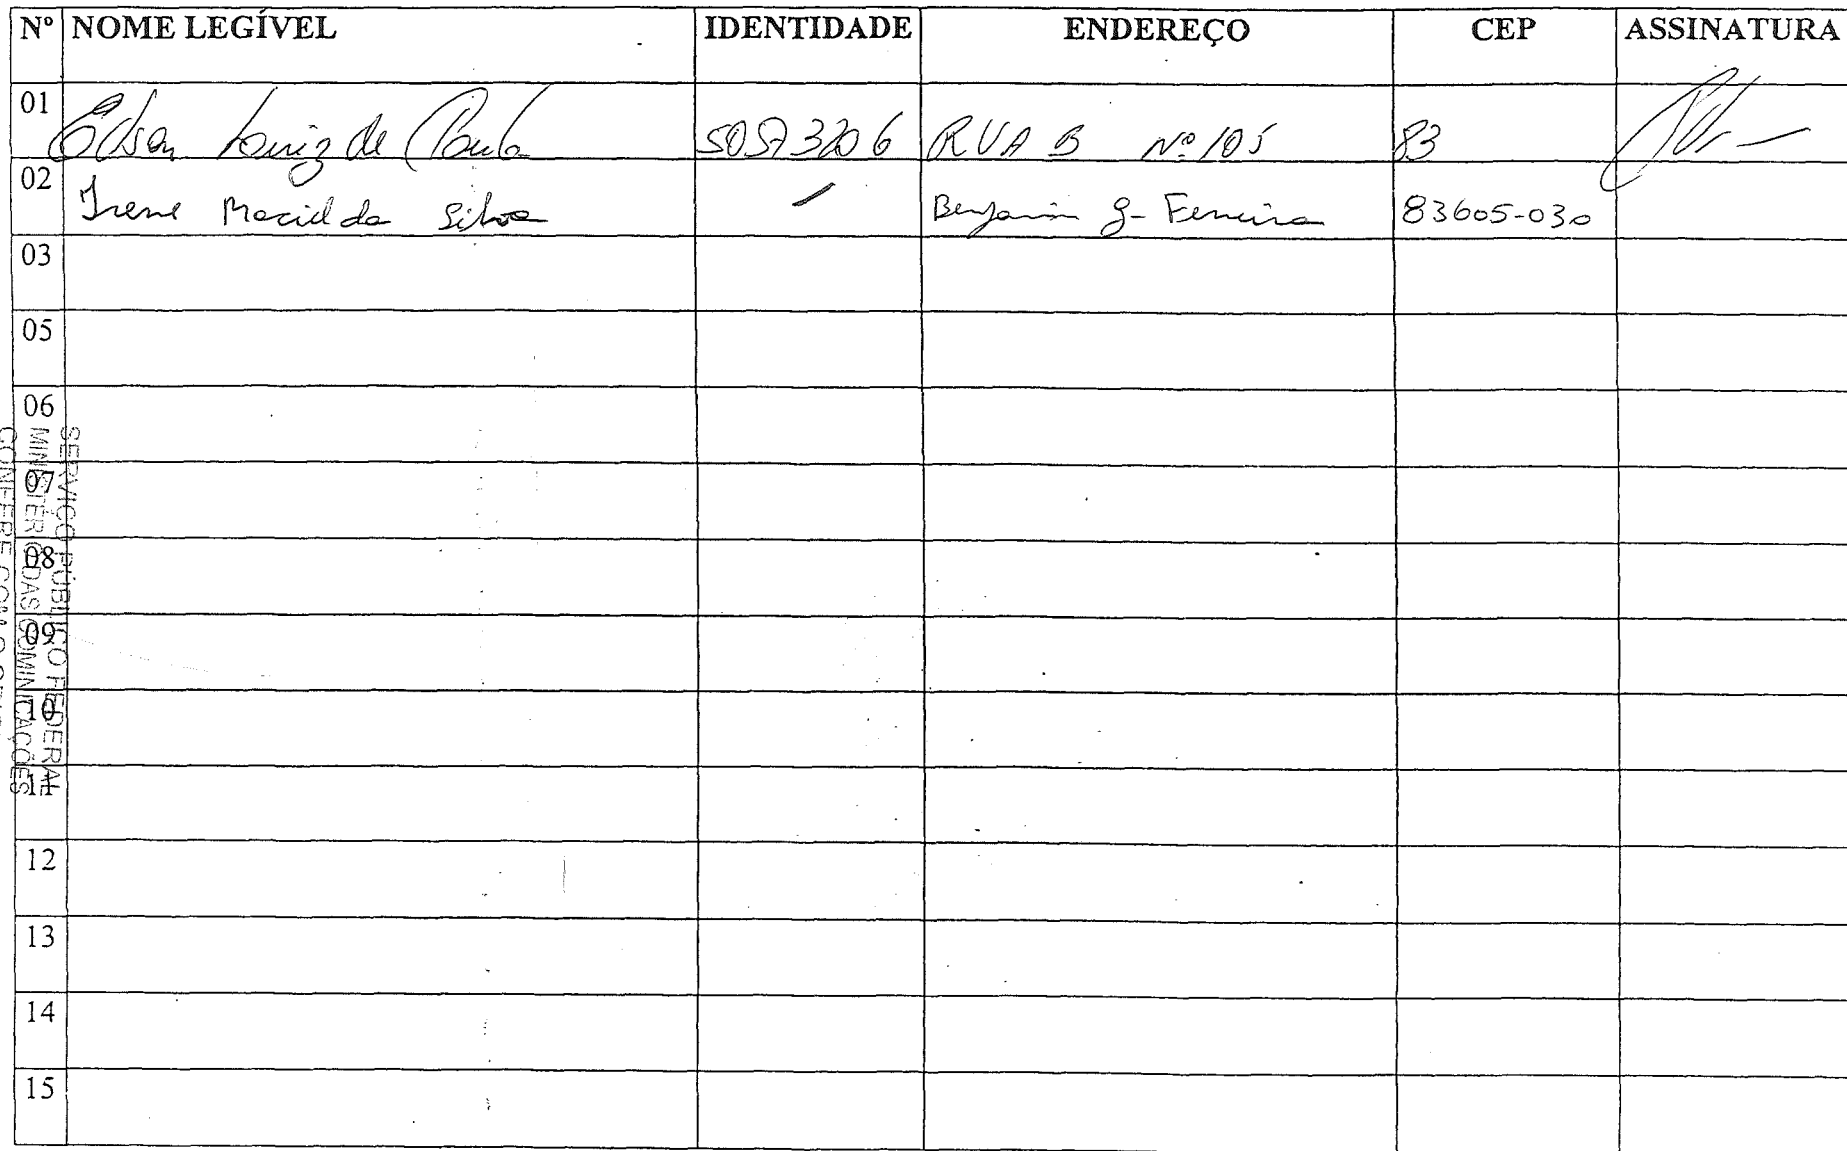 Nº NOME LEGÍVEL IDENTIDADE ENDEREÇO CEP ASSINATURA
01 Edson Luiz de Paula RUA B Nº 105 83
02 Irene Maciel da Silva Benjamin Ferreira 83605-030
03
05
06
07
08
09
10
11
12
13
14
15
SERVIÇO PÚBLICO FEDERAL
MINISTÉRIO DAS COMINICAÇÕES
CONFERE COM O